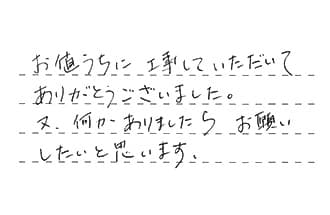 お値うちに 工事していただいて
ありがとうございました。
又、何かありましたら お願い
したいと思います。